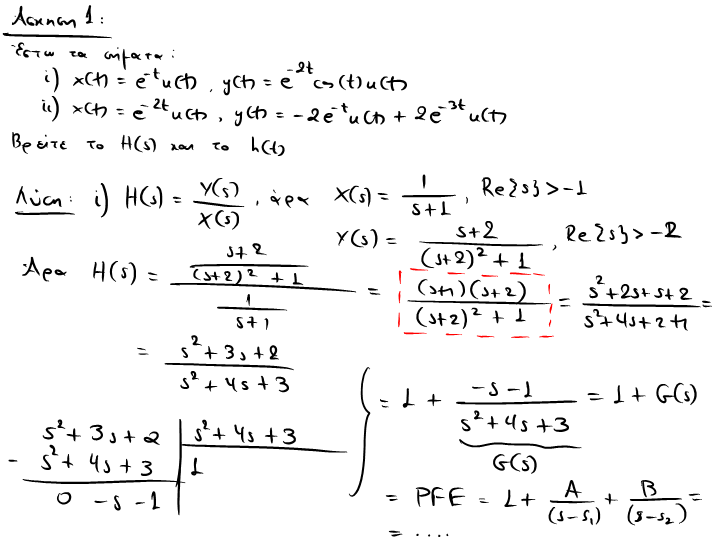 Άσκηση 1:
Έστω τα σήματα:
i) x(t) = e^{-t}u(t), y(t) = e^{-2t}cos(t)u(t)
ii) x(t) = e^{-2t}u(t), y(t) = -2e^{-t}u(t) + 2e^{-3t}u(t)
Βρείτε το H(s) και το h(t)
Λύση: i) H(s) = Y(s)/X(s), άρα X(s) = 1/(s+1), Re{s} > -1
Y(s) = (s+2)/((s+2)^2 + 1), Re{s} > -2
Άρα H(s) = ((s+2)/((s+2)^2 + 1))/(1/(s+1)) = ((s+1)(s+2))/((s+2)^2 + 1) = (s^2+2s+s+2)/(s^2+4s+2+1) =
= (s^2+3s+2)/(s^2+4s+3)
= 1 + (-s-1)/(s^2+4s+3) = 1 + G(s)
G(s)
s^2+3s+2 | s^2+4s+3
- s^2+4s+3 | 1
0 -s -1
= PFE = 1 + A/(s-s_1) + B/(s-s_2) =
= ....